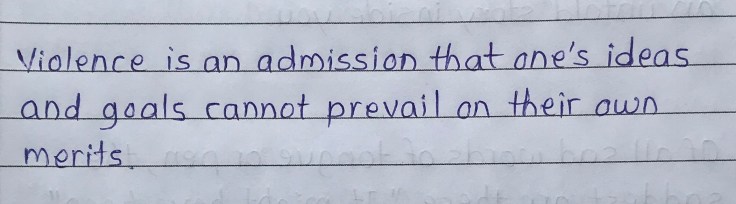 Violence is an admission that one's ideas
and goals cannot prevail on their own
merits.